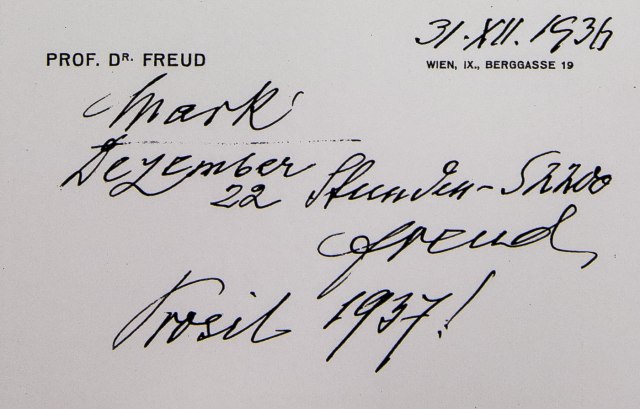 31.XII.1936
PROF. DR. FREUD
WIEN, IX., BERGGASSE 19
Mark
Dezember
22 Stunden – S 2200
Freud
Prosit 1937!